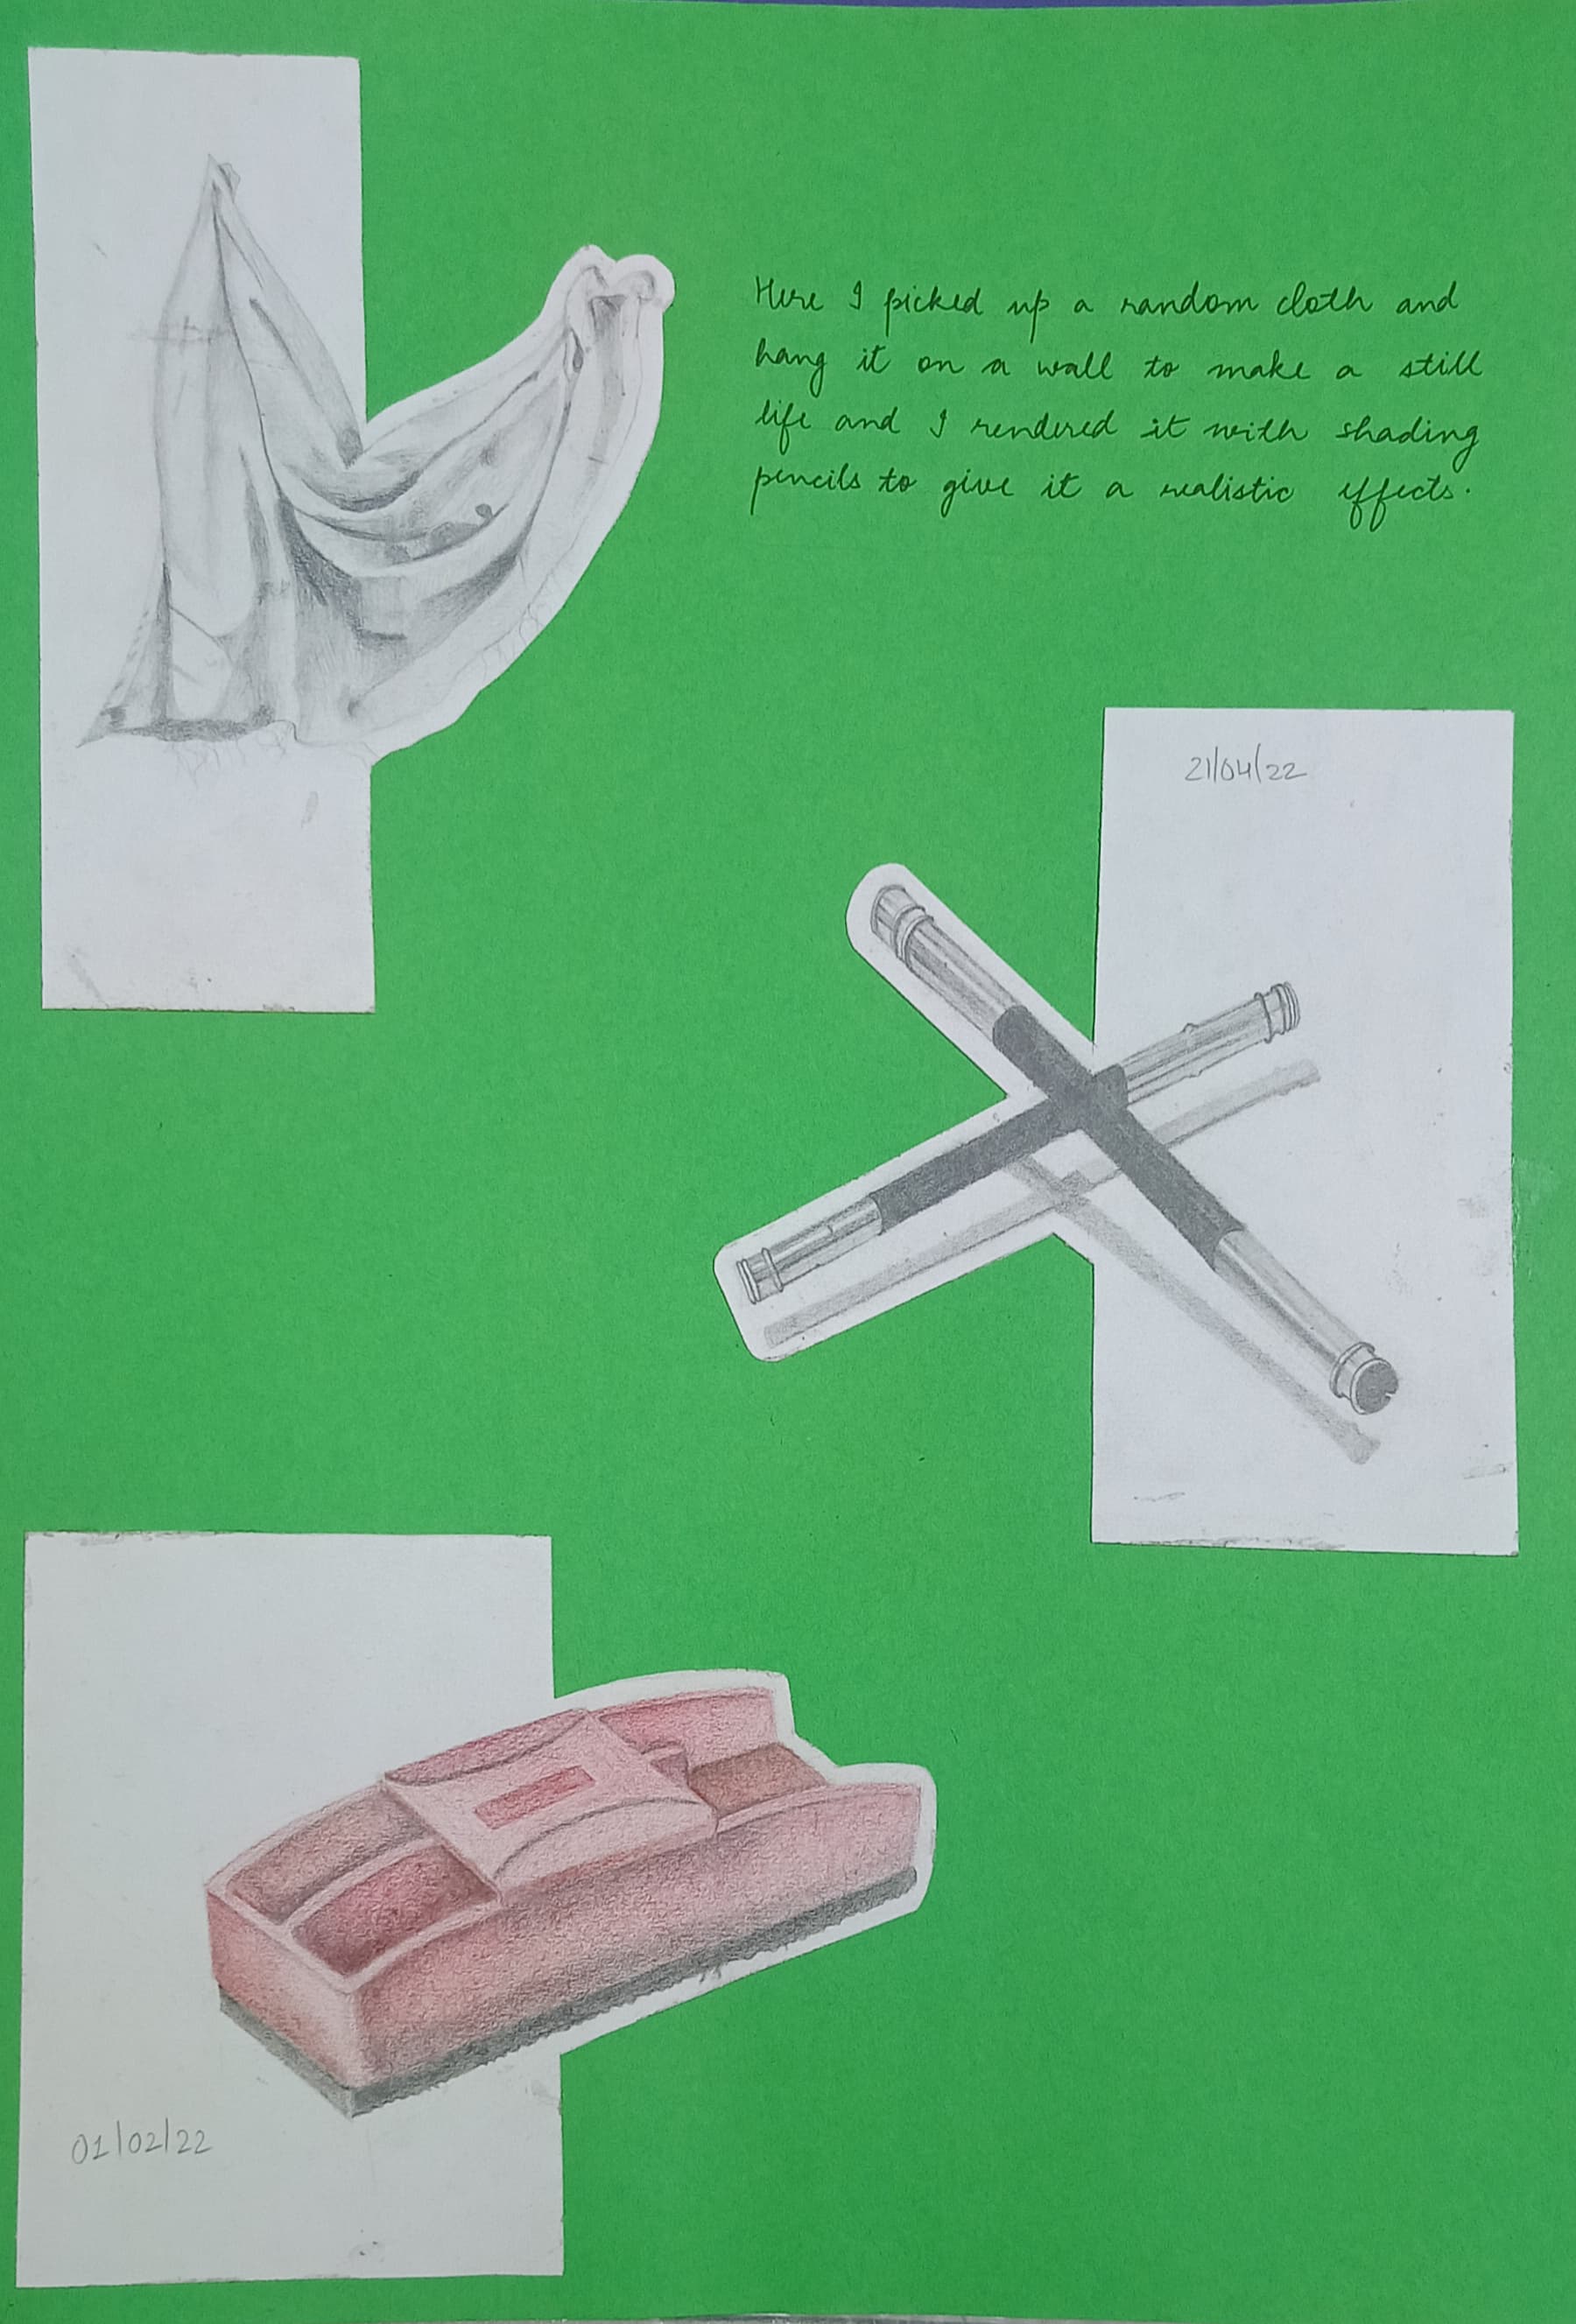 Here I picked up a random cloth and
hang it on a wall to make a still
life and I rendered it with shading
pencils to give it a realistic effects.
21/04/22
01/02/22